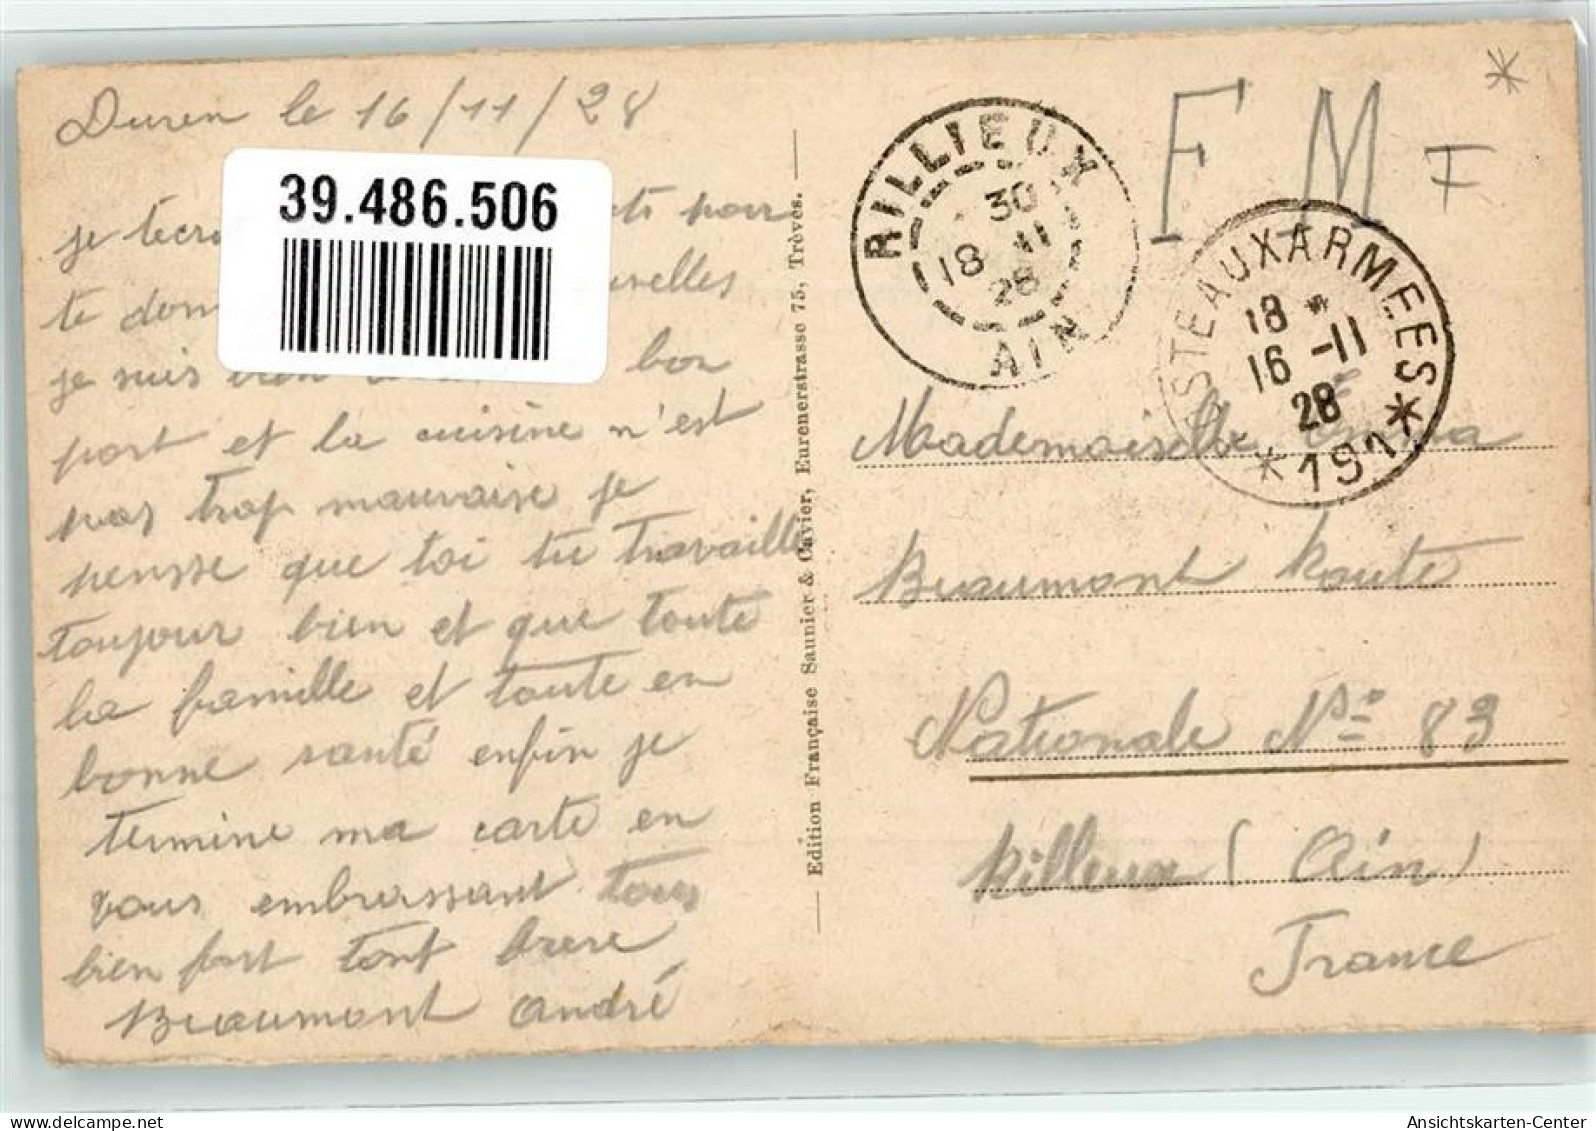 Duren le 16/11/28
39.486.506
je tecri pour
te don velles
je suis bon
port et la cuisine n'est
pas trop mauvaise je
pensse que toi tu travaille
toujour bien et que toute
la famille et toute en
bonne santé enfin je
termine ma carte en
vous embrassant tous
bien fort tont
Beaumont André
Edition Française Saunier & Cavier, Eurenerstrasse 75, Trèves.
F M =
RILLIEUX
30
18 11
28
AIN
STEAUXARMEES
18 *
16 -11
28
* 191 *
Mademoiselle
Beaumont Route
Nationale No 83
Rillieux (Ain)
France
Ansichtskarten-Center
delcampe.net